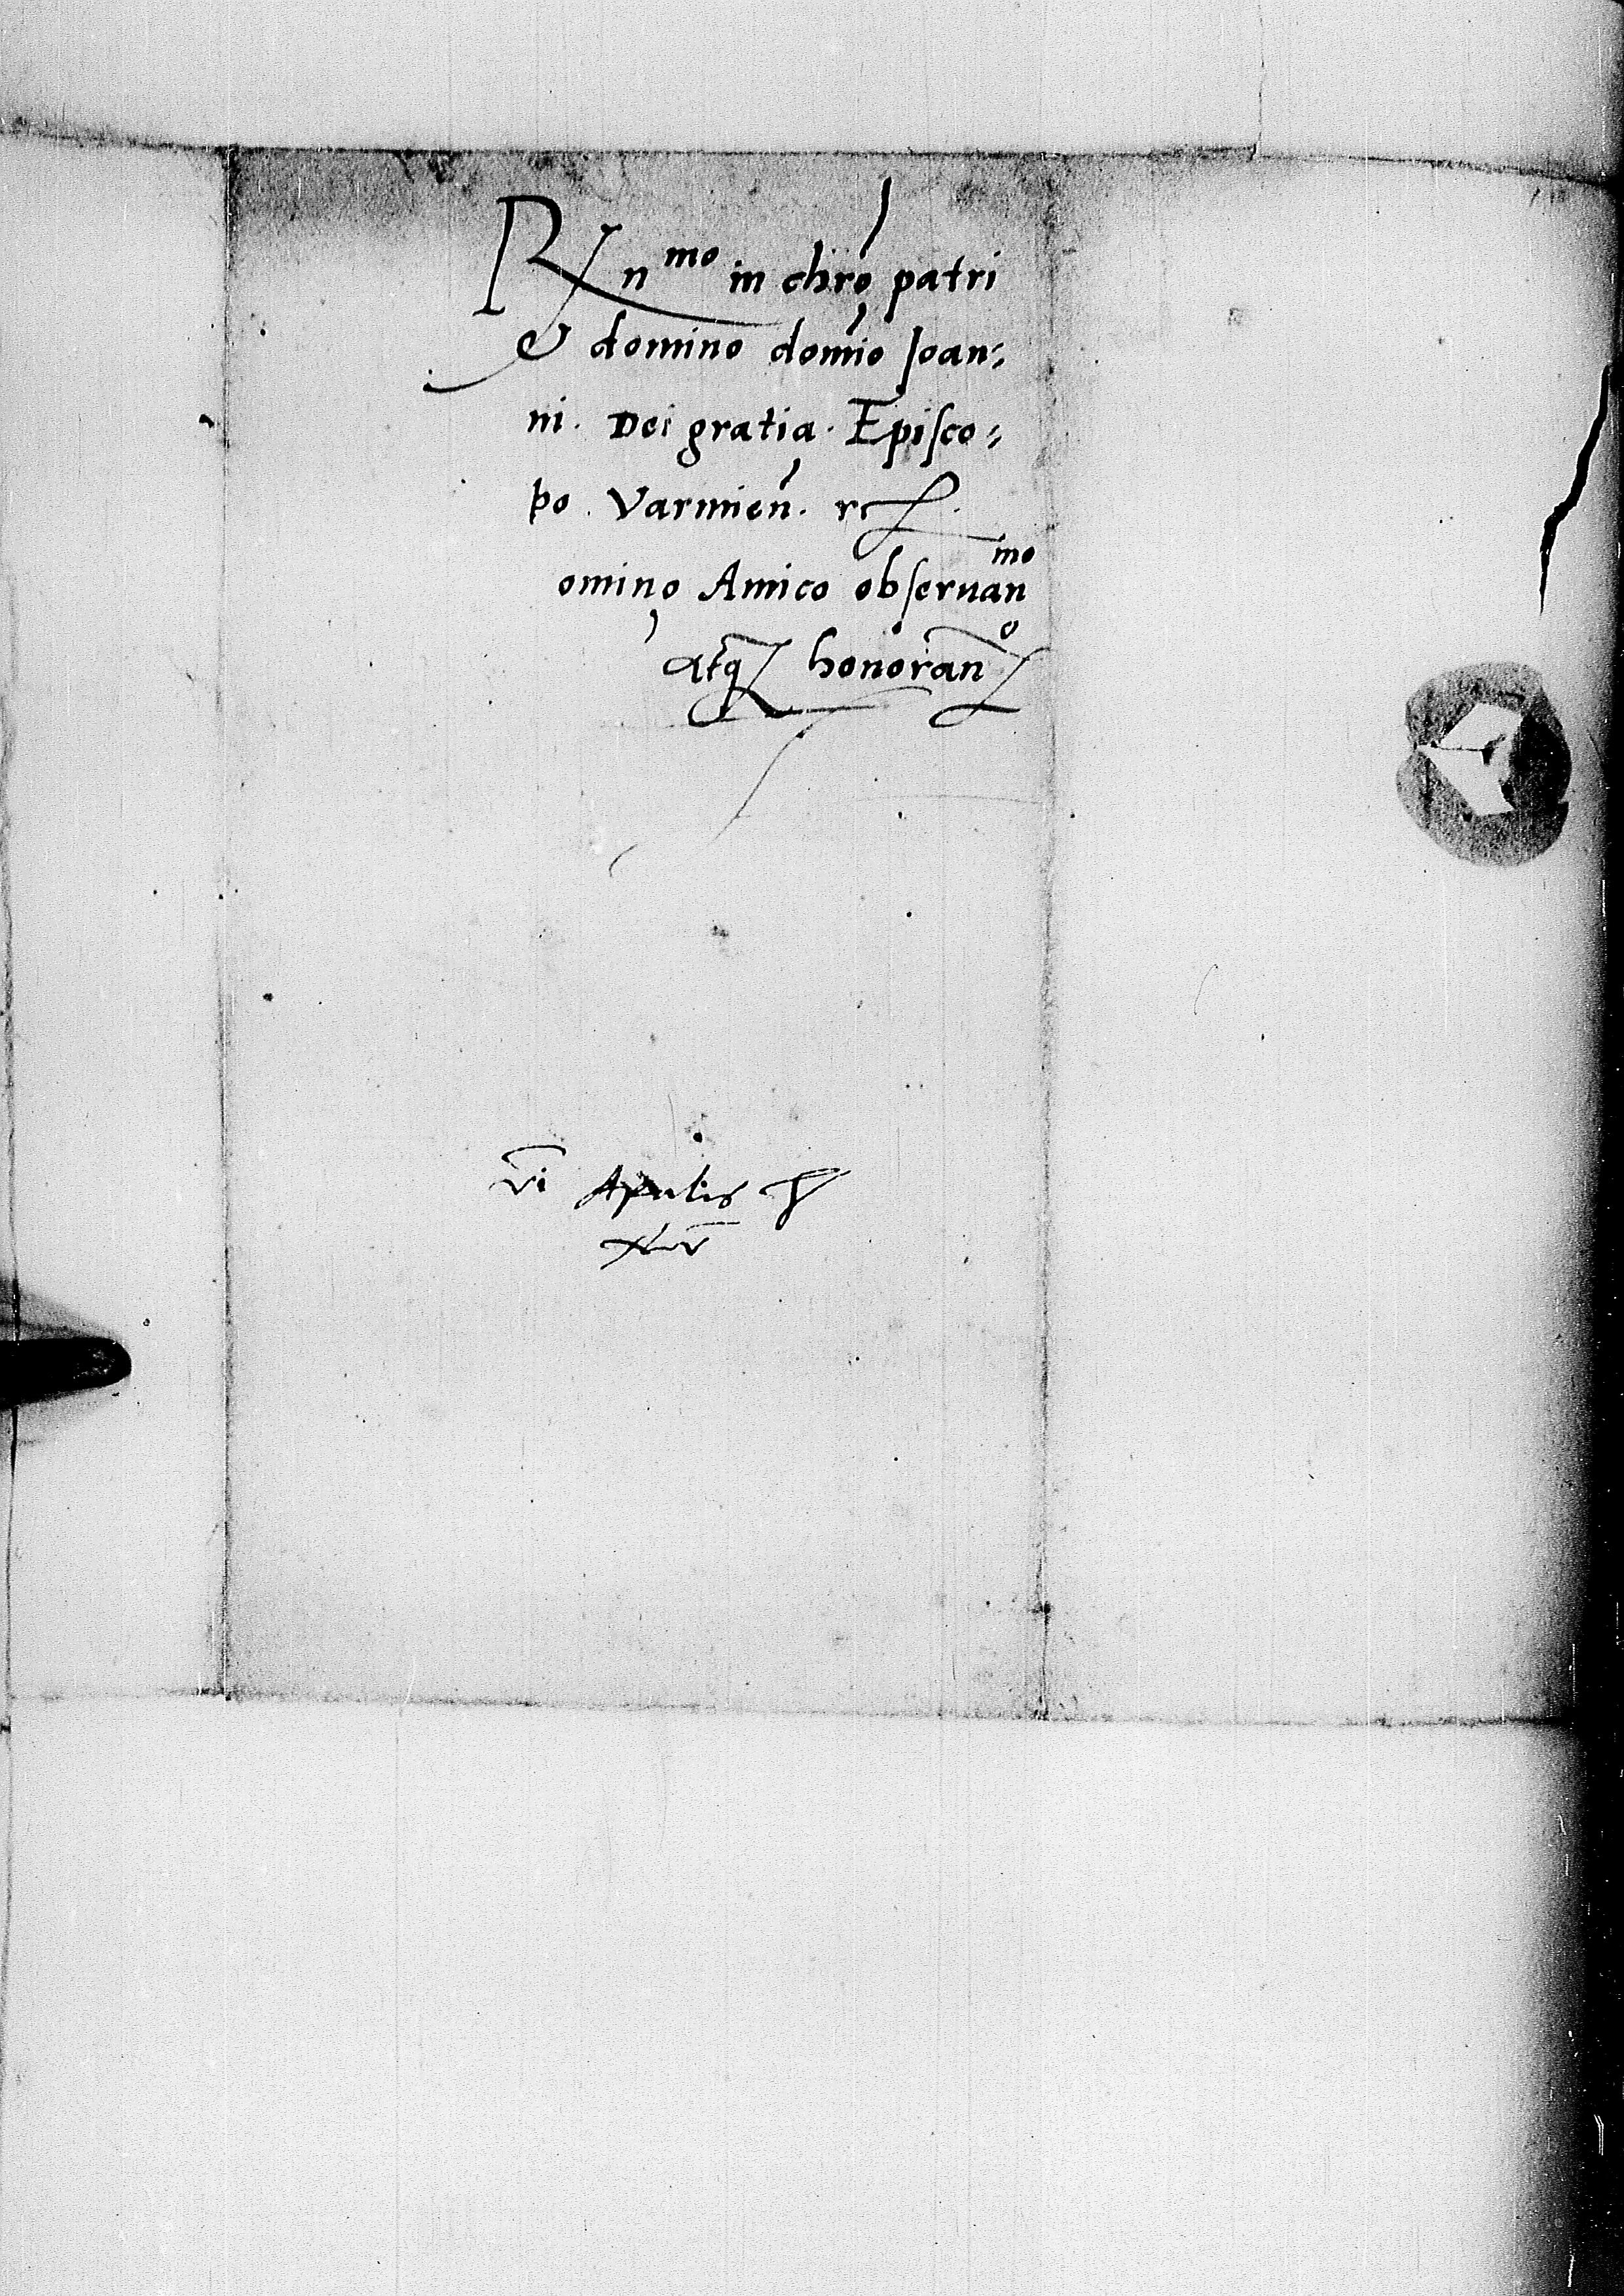 Rn^mo in chr̃o patri
& domino dom̃io Joan=
ni. Dei gratia. Episco=
po. Varmien̄. rc.
omino Amico obseruan^mo
atq̃ honoran^o
vi Aprilis
xlv